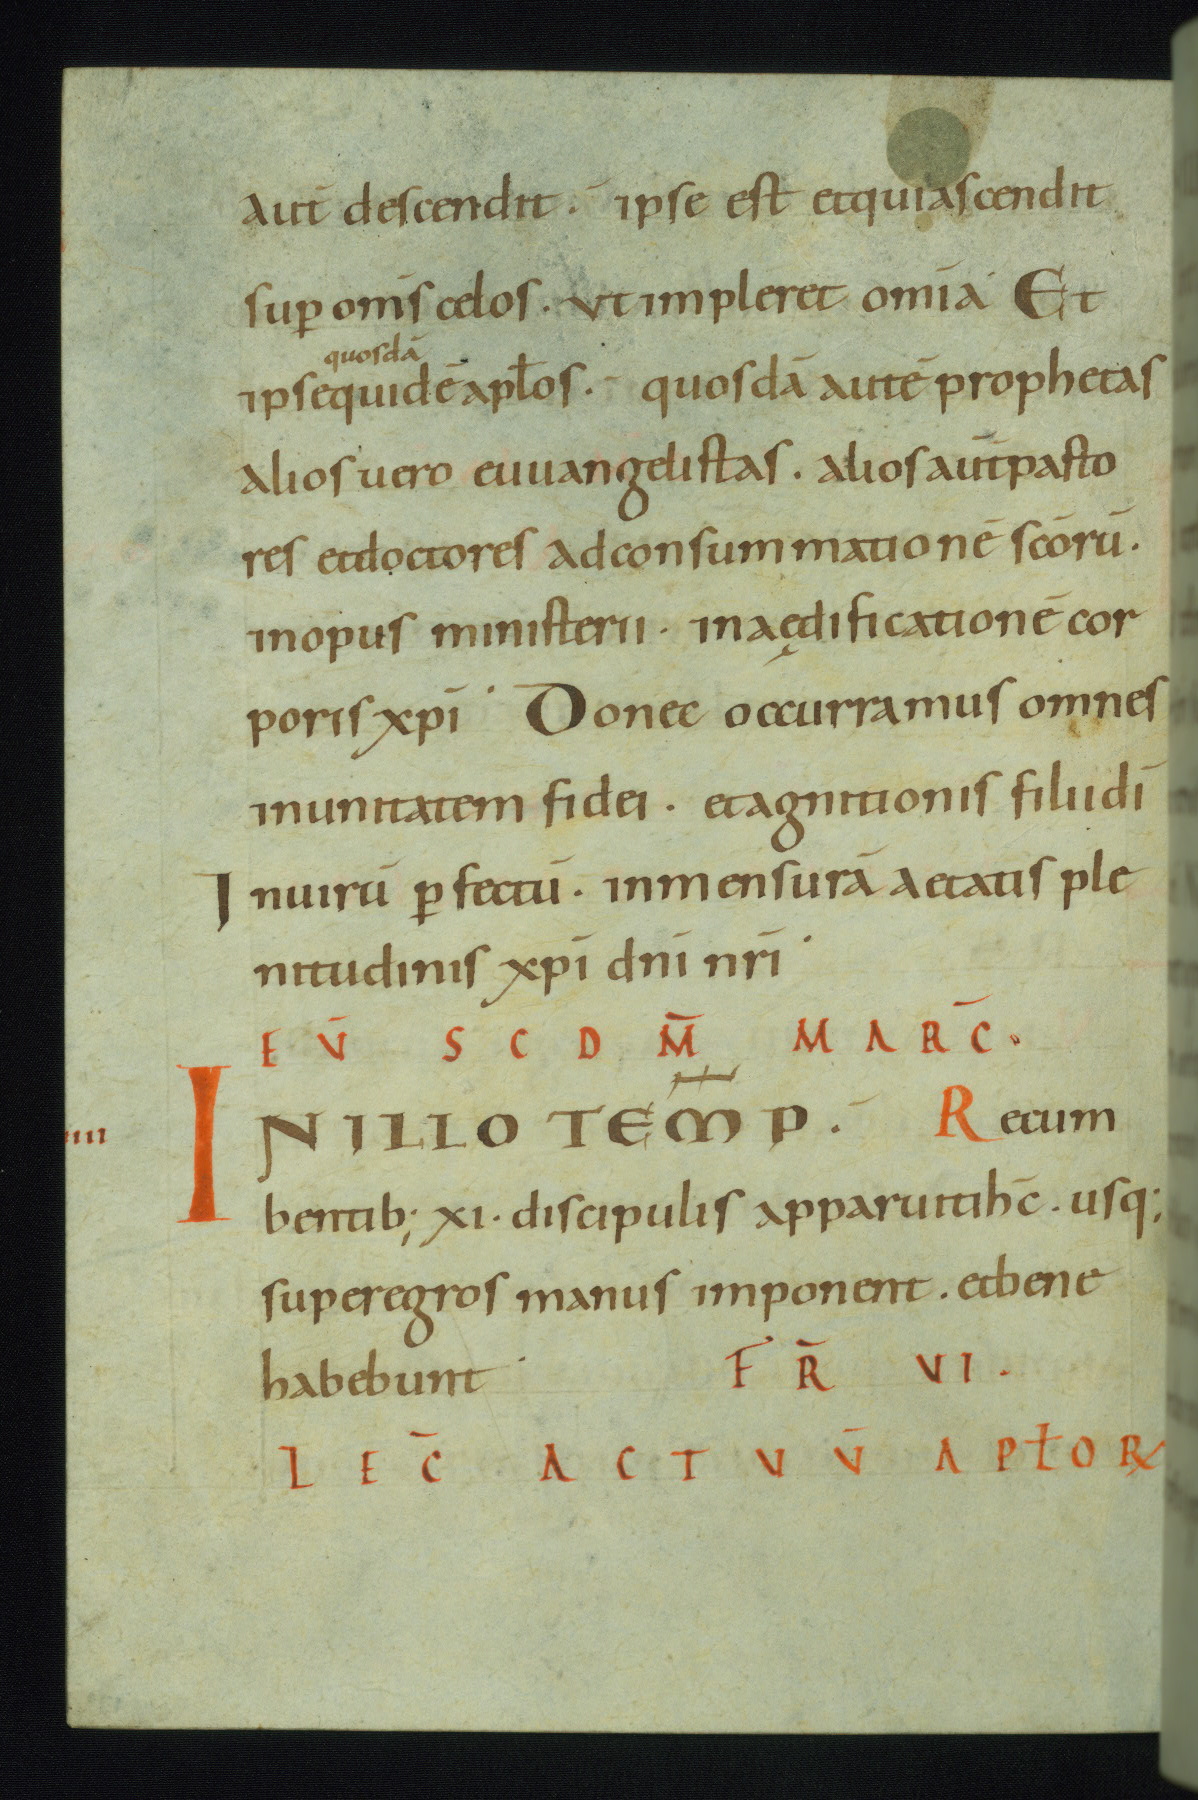 aut̄ descendit · ipse est et qui ascendit
sup̄ om̄s celos · ut impleret om̄ia Et
quosdā
ipse quidē apl̄os · quosdā autē prophetas
alios uero euuangelistas · alios aut̄ pasto
res et doctores ad consummationē sc̄orū ·
in opus ministerii · in aędificationē cor
poris xp̄i Donec occurramus omnes
in unitatem fidei · et agnitionis filii dī
In uirū p̄fectū · in mensurā aetatis ple
nitudinis xp̄i dn̄i nr̄i
EV̄ SCDM̄ MARC̄ ·
IN ILLO TEM̄P · Recum
IIII
bentib; XI · discipulis apparuit ih̄c · usq;
super egros manus imponent · et bene
habebunt FR̄ VI ·
LEC̄ ACTVV̄ APŁORꝜ